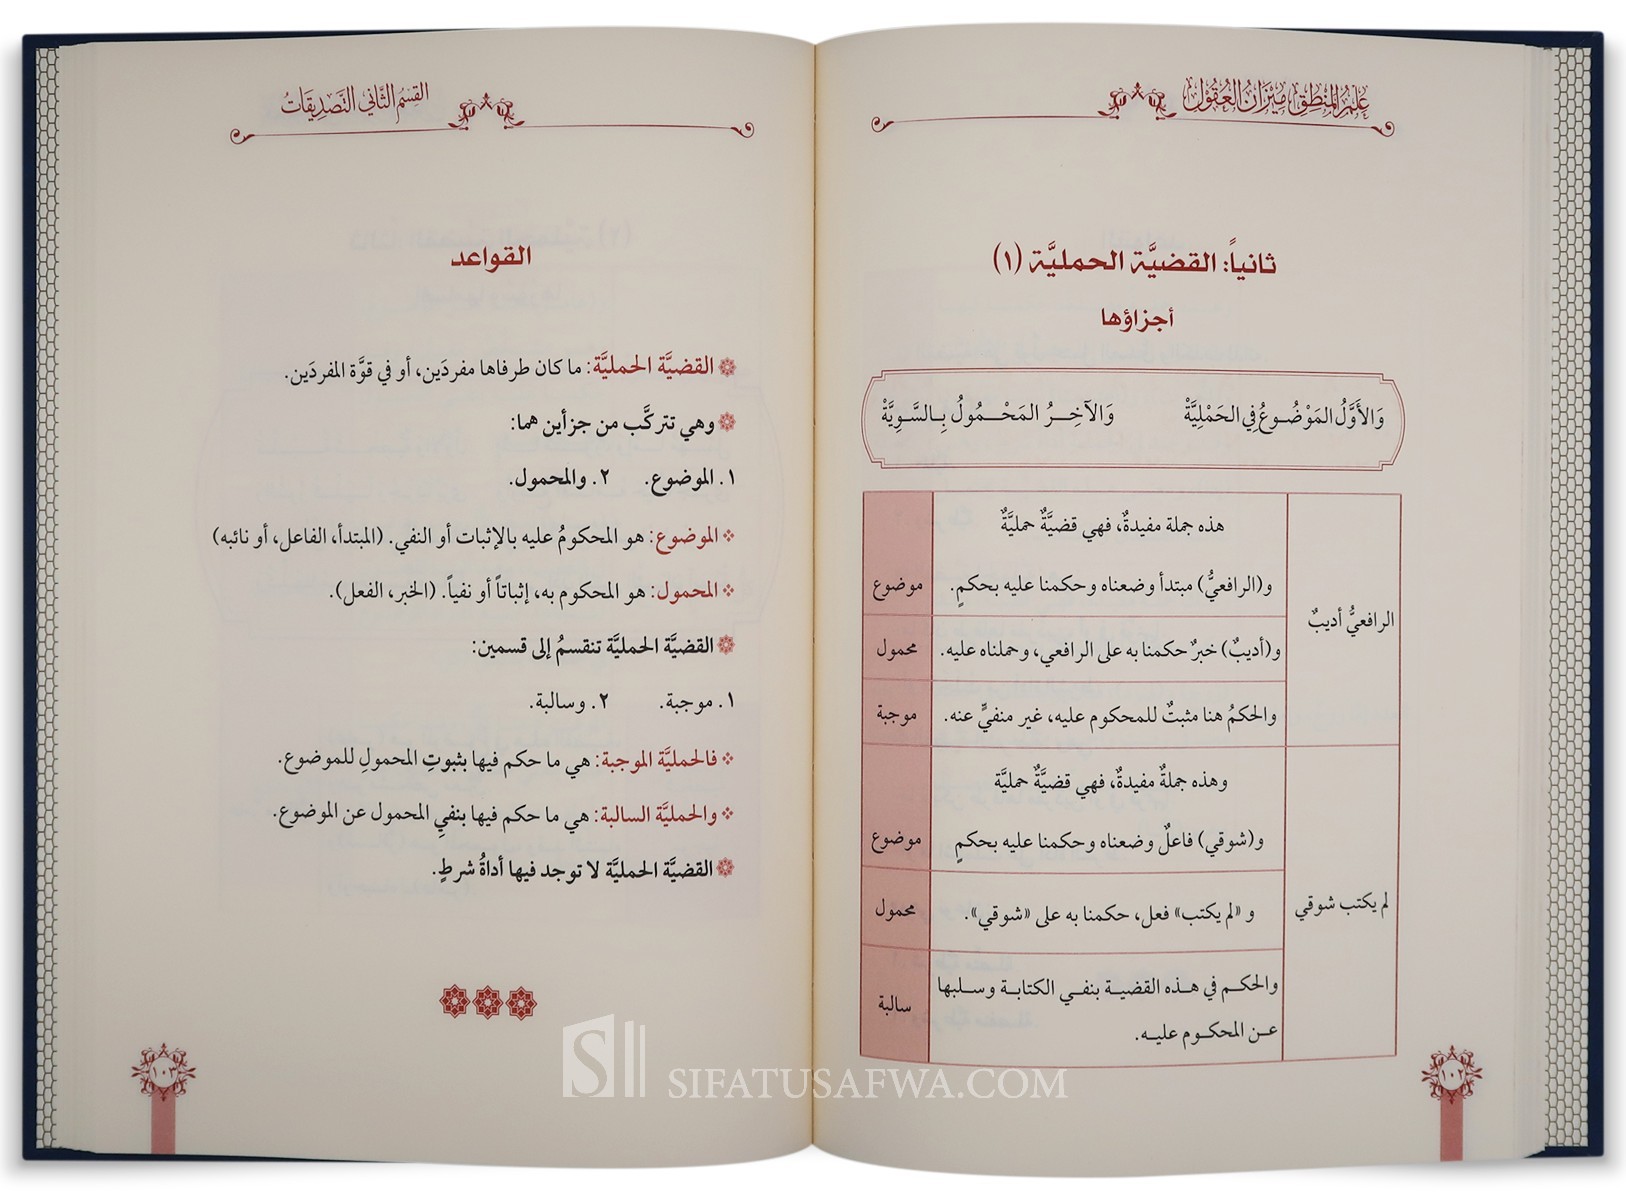 علم المنطق ميزان العقول
ثانياً: القضيَّة الحمليَّة (١)
أجزاؤها
وَالأَوَّلُ المَوْضُوعُ فِي الحَمْلِيَّةْ وَالآخِرُ المَحْمُولُ بِالسَّوِيَّةْ
الرافعيُّ أديبٌ
هذه جملة مفيدةٌ، فهي قضيَّةٌ حمليَّةٌ
و(الرافعيُّ) مبتدأ وضعناه وحكمنا عليه بحكمٍ.
موضوع
و(أديبٌ) خبرٌ حكمنا به على الرافعي، وحملناه عليه.
محمول
والحكمُ هنا مثبتٌ للمحكوم عليه، غير منفيٍّ عنه.
موجبة
لم يكتب شوقي
وهذه جملةٌ مفيدةٌ، فهي قضيَّةٌ حمليَّة
و(شوقي) فاعلٌ وضعناه وحكمنا عليه بحكمٍ
موضوع
و «لم يكتب» فعل، حكمنا به على «شوقي».
محمول
والحكم في هذه القضية بنفي الكتابة وسلبها
عن المحكوم عليه.
سالبة
١٠٢
القِسمُ الثَّاني التَّصدِيقَاتُ
القواعد
القضيَّة الحمليَّة: ما كان طرفاها مفردَين، أو في قوَّة المفردَين.
وهي تتركَّب من جزأين هما:
١. الموضوع. ٢. والمحمول.
الموضوع: هو المحكومُ عليه بالإثبات أو النفي. (المبتدأ، الفاعل، أو نائبه)
المحمول: هو المحكوم به، إثباتاً أو نفياً. (الخبر، الفعل).
القضيَّة الحمليَّة تنقسمُ إلى قسمين:
١. موجبة. ٢. وسالبة.
فالحمليَّة الموجبة: هي ما حكم فيها بثبوتِ المحمولِ للموضوع.
والحمليَّة السالبة: هي ما حكم فيها بنفيِ المحمول عن الموضوع.
القضيَّة الحمليَّة لا توجد فيها أداةُ شرطٍ.
١٠٣
SIFATUSAFWA.COM